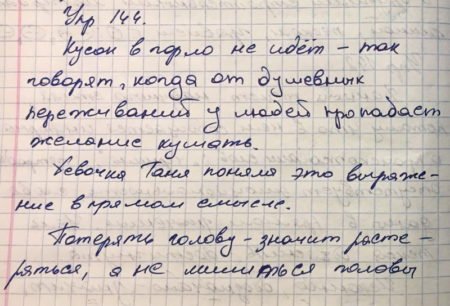 Упр 144.
Кусок в горло не идёт – так
говорят, когда от душевных
переживаний у людей пропадает
желание кушать.
Девочка Таня поняла это выраже-
ние в прямом смысле.
Потерять голову – значит расте-
ряться, а не лишиться головы